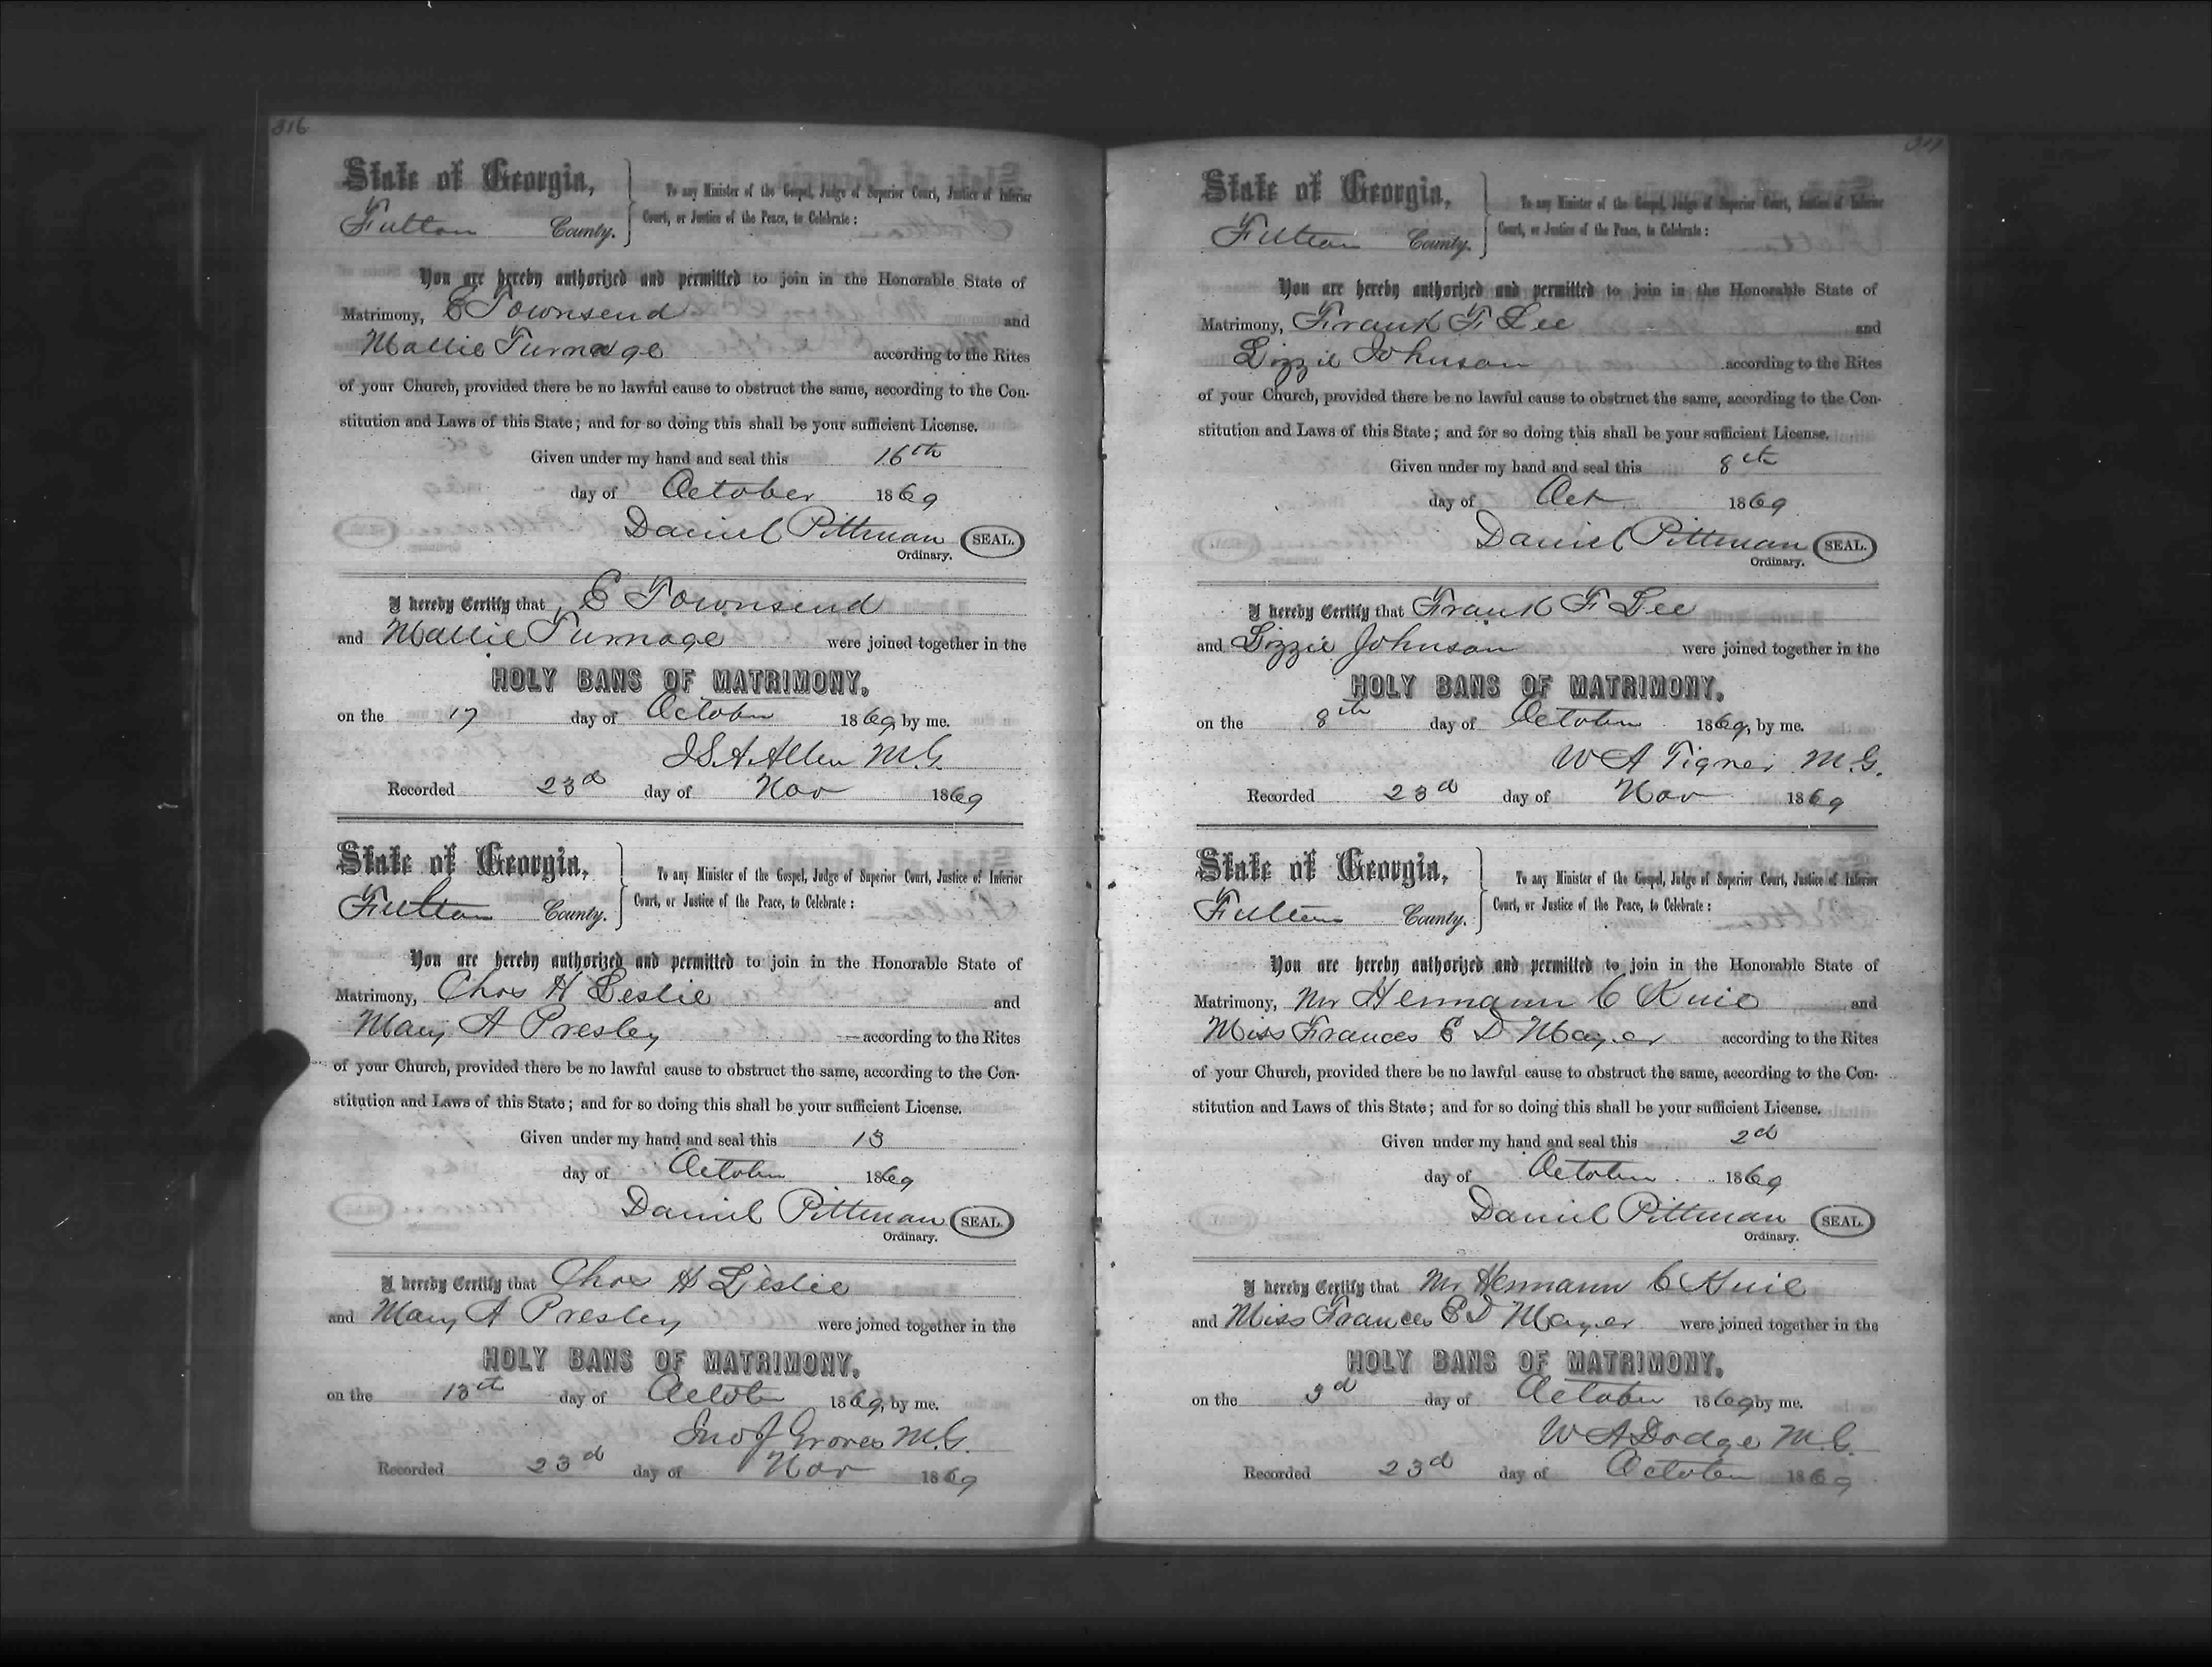 316
State of Georgia,
Fulton County.
To any Minister of the Gospel, Judge of Superior Court, Justice of Inferior
Court, or Justice of the Peace, to Celebrate:
You are hereby authorized and permitted to join in the Honorable State of
Matrimony, E Townsend and
Mallie Turnage according to the Rites
of your Church, provided there be no lawful cause to obstruct the same, according to the Con-
stitution and Laws of this State; and for so doing this shall be your sufficient License.
Given under my hand and seal this 16th
day of October 1869
Daniel Pittman SEAL.
Ordinary.
I hereby Certify that E Townsend
and Mallie Turnage were joined together in the
HOLY BANS OF MATRIMONY,
on the 17 day of October 1869, by me.
J.S.A. Allen M.G.
Recorded 23d day of Nov 1869
State of Georgia,
Fulton County.
To any Minister of the Gospel, Judge of Superior Court, Justice of Inferior
Court, or Justice of the Peace, to Celebrate:
You are hereby authorized and permitted to join in the Honorable State of
Matrimony, Chas H Leslie and
Mary A Presley according to the Rites
of your Church, provided there be no lawful cause to obstruct the same, according to the Con-
stitution and Laws of this State; and for so doing this shall be your sufficient License.
Given under my hand and seal this 13
day of October 1869
Daniel Pittman SEAL.
Ordinary.
I hereby Certify that Chas H Leslie
and Mary A Presley were joined together in the
HOLY BANS OF MATRIMONY,
on the 13th day of October 1869, by me.
Jno J Groves M.G.
Recorded 23d day of Nov 1869
317
State of Georgia,
Fulton County.
To any Minister of the Gospel, Judge of Superior Court, Justice of Inferior
Court, or Justice of the Peace, to Celebrate:
You are hereby authorized and permitted to join in the Honorable State of
Matrimony, Frank F Lee and
Lizzie Johnson according to the Rites
of your Church, provided there be no lawful cause to obstruct the same, according to the Con-
stitution and Laws of this State; and for so doing this shall be your sufficient License.
Given under my hand and seal this 8th
day of Oct 1869
Daniel Pittman SEAL.
Ordinary.
I hereby Certify that Frank F Lee
and Lizzie Johnson were joined together in the
HOLY BANS OF MATRIMONY,
on the 8th day of October 1869, by me.
W A Tigner M.G.
Recorded 23d day of Nov 1869
State of Georgia,
Fulton County.
To any Minister of the Gospel, Judge of Superior Court, Justice of Inferior
Court, or Justice of the Peace, to Celebrate:
You are hereby authorized and permitted to join in the Honorable State of
Matrimony, Mr Hermann C and
Miss Frances E D Mayer according to the Rites
of your Church, provided there be no lawful cause to obstruct the same, according to the Con-
stitution and Laws of this State; and for so doing this shall be your sufficient License.
Given under my hand and seal this 2d
day of October 1869
Daniel Pittman SEAL.
Ordinary.
I hereby Certify that Mr Hermann C
and Miss Frances E D Mayer were joined together in the
HOLY BANS OF MATRIMONY,
on the 3d day of October 1869 by me.
W A Dodge M.G.
Recorded 23d day of October 1869